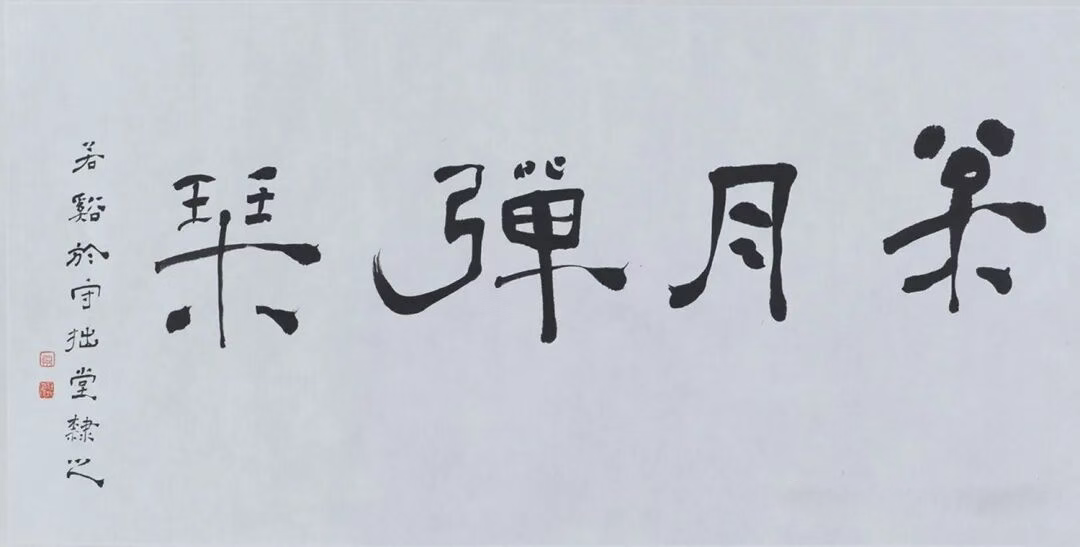 枩月彈琹
若谿於守拙堂隸之